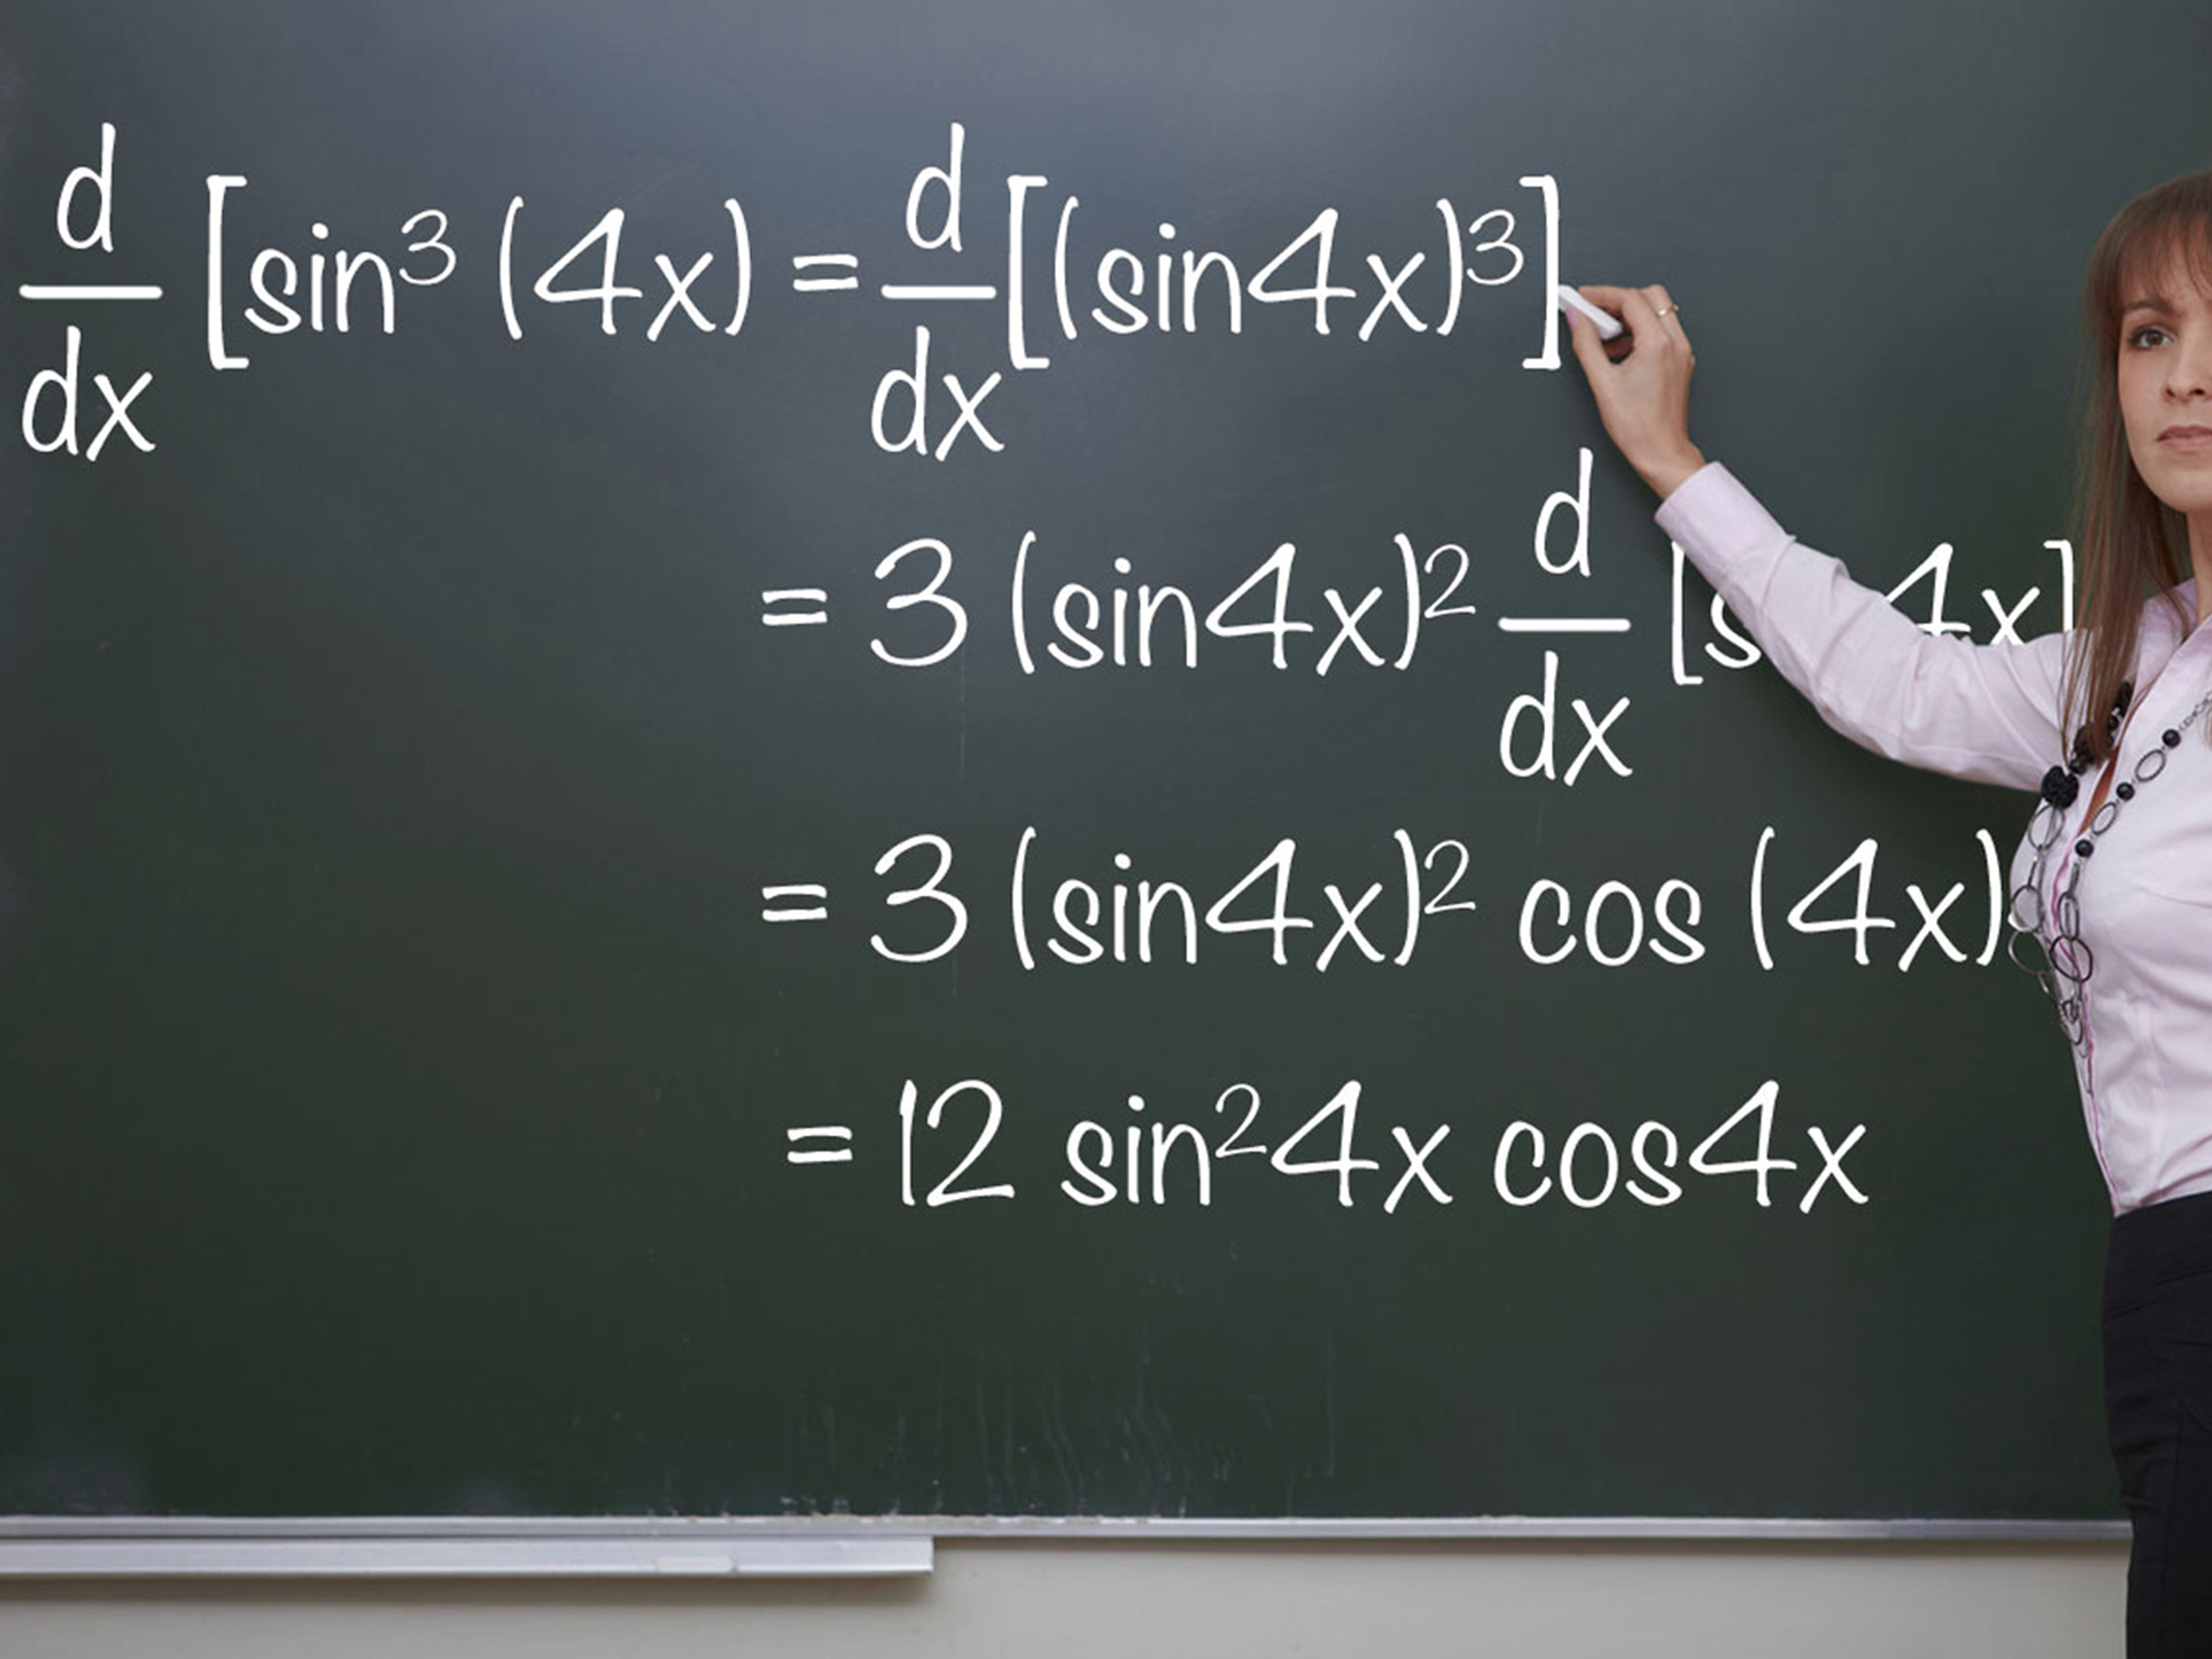 d/dx [sin³ (4x) = d/dx [(sin4x)³]
= 3 (sin4x)² d/dx [s 4x]
= 3 (sin4x)² cos (4x)
= 12 sin²4x cos4x